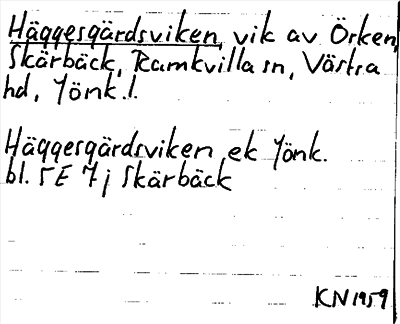 Häggesgärdsviken, vik av Örken,
Skärbäck, Ramkvilla sn, Västra
hd, Jönk. l.
Häggesgärdsviken ek Jönk.
bl. 5E 7j Skärbäck
KN 1959